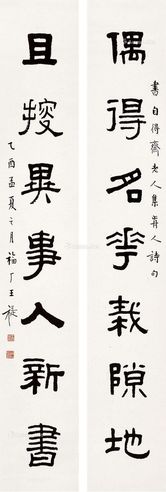 書自得齋老人集歬人詩句
偶得名華栽隙地
且搜異事入新書
乙酉孟夏之月福厂王禔